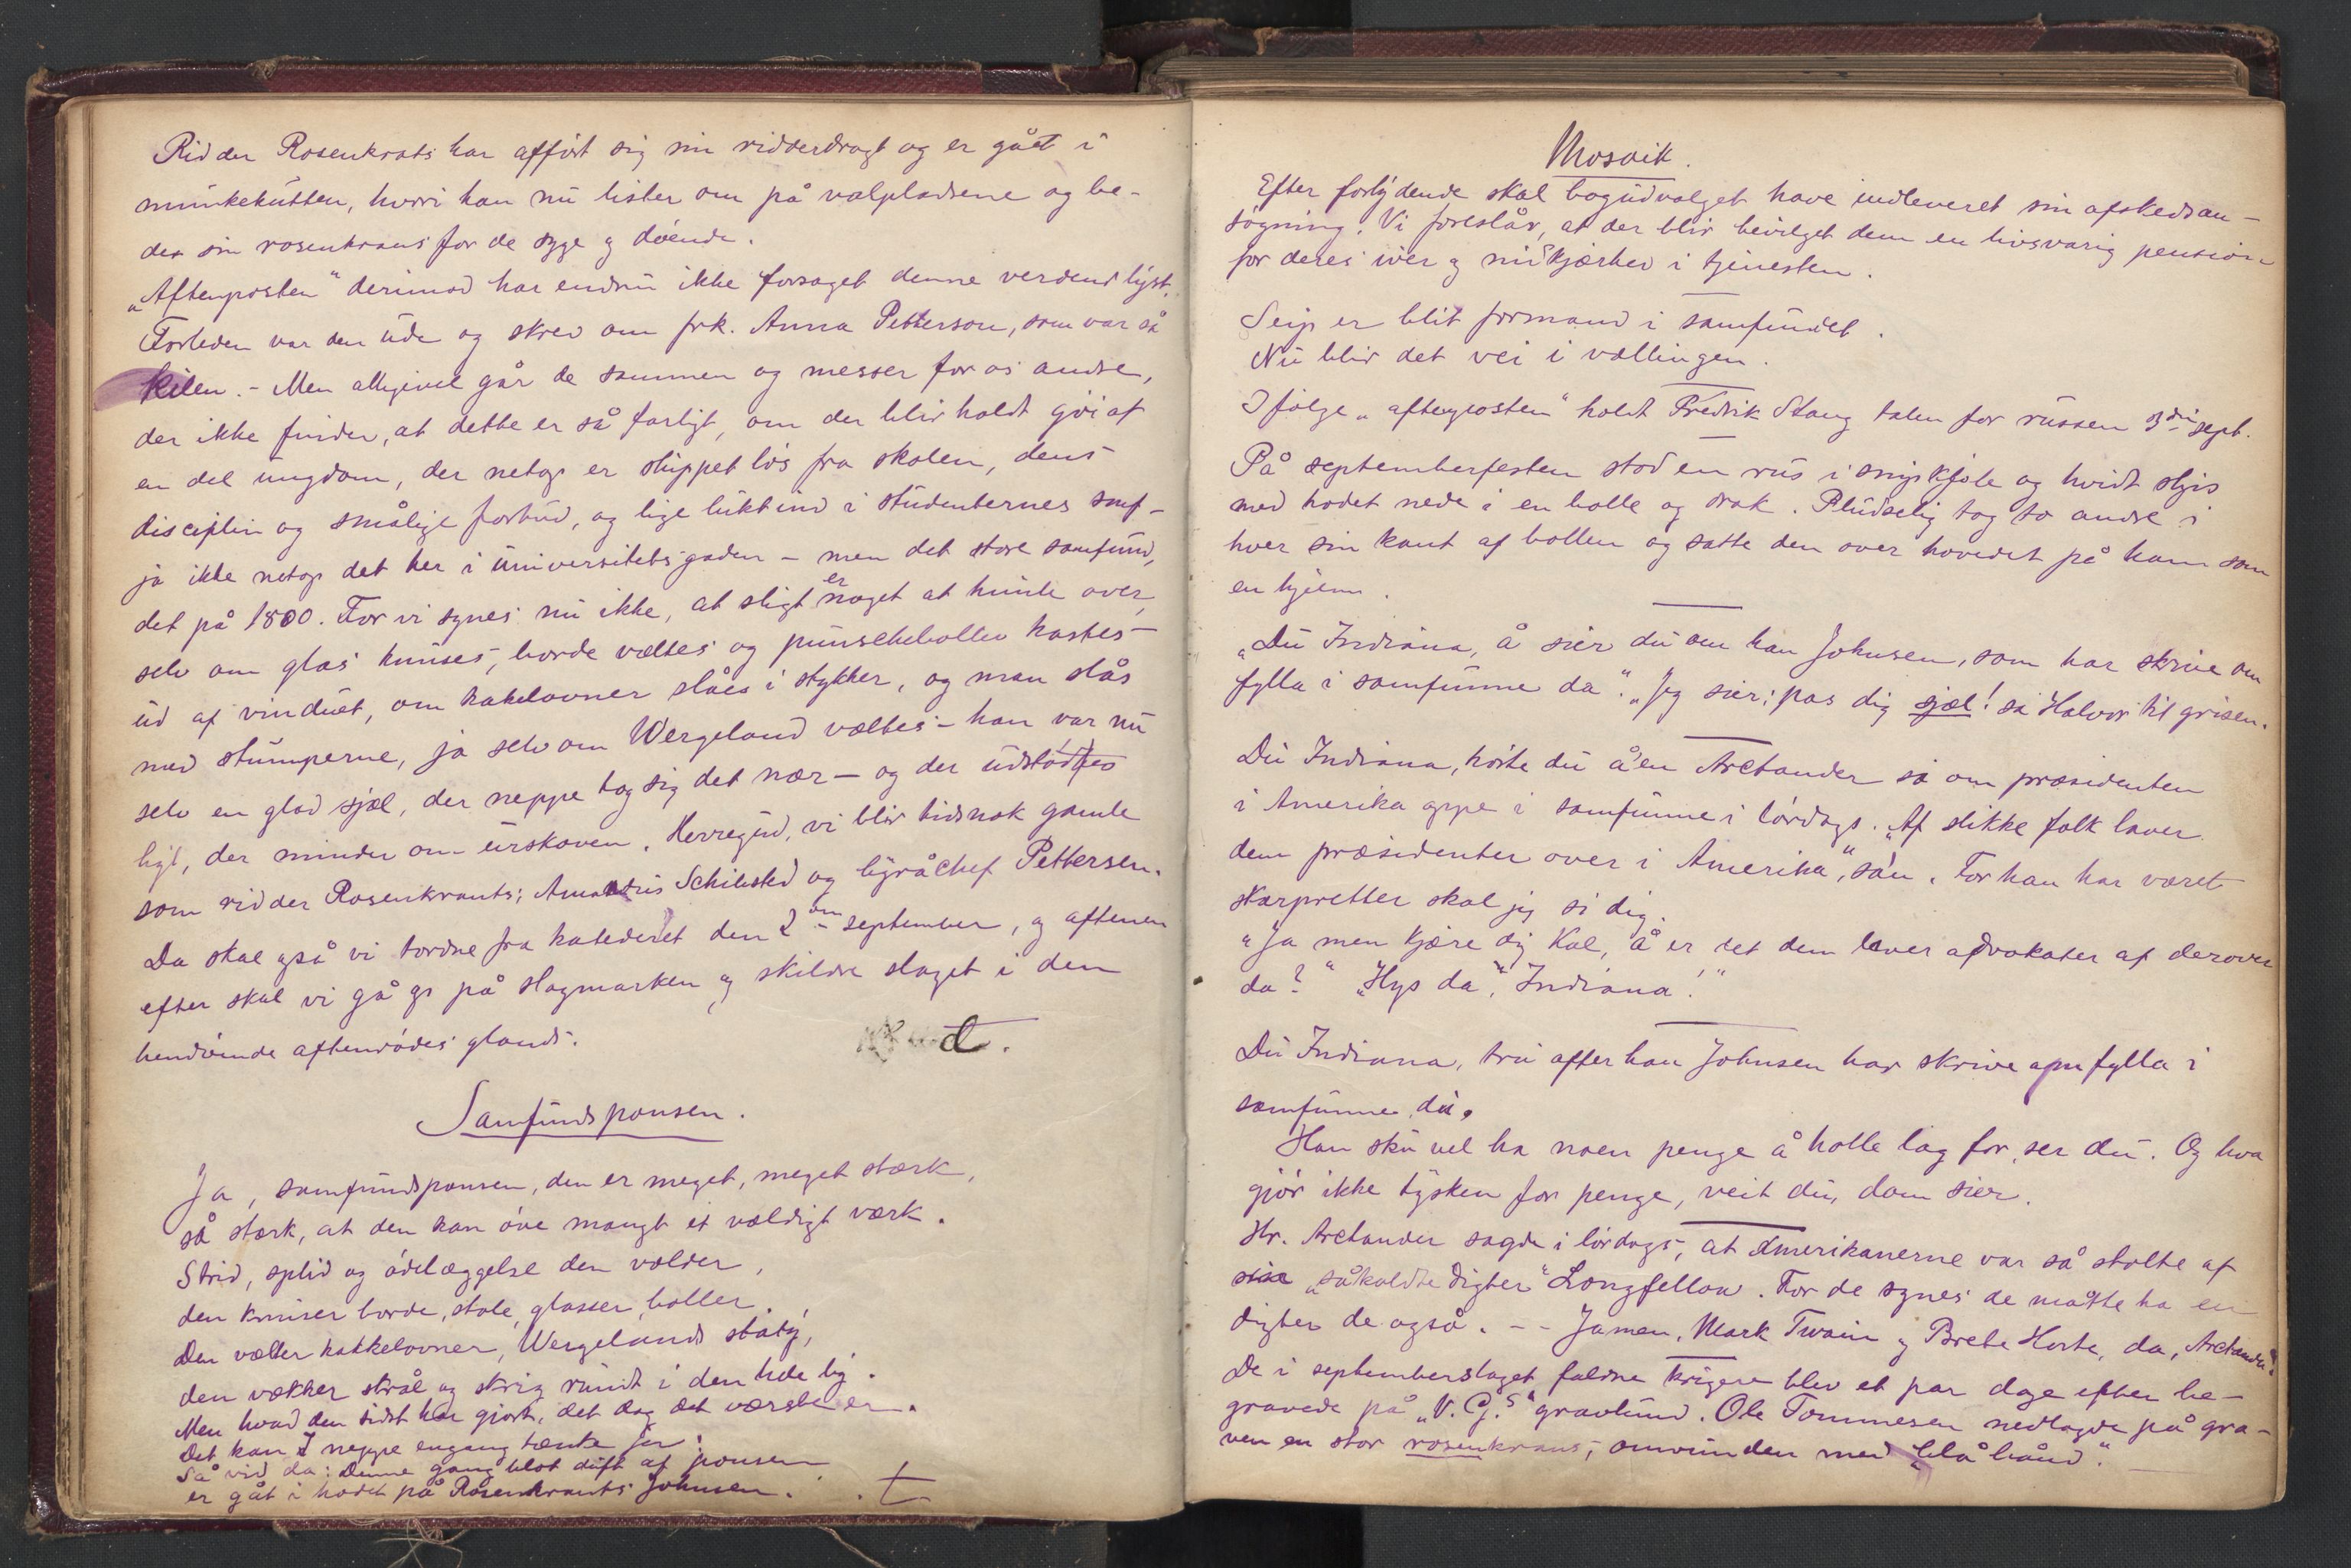 Ridder Rosenkrats har afført sig sin ridderdragt og er gået i
munkekutten, hvori han nu lister om på valpladsene og be-
der sin rosenkrans for de syge og døende.
„Aftenposten“ derimod har endnu ikke forsaget denne verdens lyst.
Forleden var den ude og skrev om frk. Anna Petterson, som var så
kilen. - Men alligevel går de sammen og messer for os andre,
der ikke finder, at dette er så farligt, om der blir holdt gøi af
en del ungdom, der netop er sluppet løs fra skolen, dens
disciplin og smålige forbud, og lige lukt ind i studenternes samf-
ja ikke netop det her i universitetsgaden - men det store samfund,
det på 1800. For vi synes nu ikke, at sligt er noget at hyle over,
selv om glas knuses, borde væltes og punschebollen kastes
ud af vinduet, om kakelovner slåes i stykker, og man slås
med stumperne, ja selv om Wergeland væltes - han var nu
selv en glad sjæl, der neppe tog sig det nær - og der udstødes
hyl, der minder om urskoven. Herregud, vi blir tidsnok gamle
som ridder Rosenkrants, Amandus Schibsted og byråchef Pettersen.
Da skal også vi tordne fra katederet den 2den september, og aftenen
efter skal vi gå op på slagmarken og skildre slaget i den
hendøende aftenrødes glands.
Samfundsponsen.
Ja, samfundsponsen, den er meget, meget stærk,
så stærk, at den kan øve mangt et vældigt værk.
Strid, splid og ødelæggelse den volder,
den knuser borde, stole, glasser, boller.
Den vælter kakkelovner, Wergelands staty,
den vækker skrål og skrig rundt i den hele by.
Men hvad den sidst har gjort, det dog det værste er.
Det kan I neppe engang tænke jer:
Så vid da: Denne gang blot duft af ponsen
er gåt i hodet på Rosenkrants Johnsen. . t
Mosaik.
Efter forlydende skal bogudvalget have indleveret sin afskedsan-
søgning. Vi foreslår, at der blir bevilget dem en livsvarig pension
for deres iver og nidkjærhed i tjenesten.
Seip er blit formand i samfundet.
Nu blir det vei i vællingen.
Ifølge „aftenposten“ holdt Fredrik Stang talen for russen 3die sept.
På septemberfesten stod en rus i snipkjole og hvidt slips
med hodet nede i en bolle og drak. Pludselig tog to andre i
hver sin kant af bollen og satte den over hovedet på ham som
en hjelm.
„Du Indiana, å sier du om han Johnsen, som har skrive om
fylla i samfunne da“. „Jeg sier: pas dig sjæl! sa Halvor til grisen.
Du Indiana, hørte du å'en Arctander sa om præsidenten
i Amerika oppe i samfunne i lørdags. „Af slikke folk laver
dem præsidenter over i Amerika“, sa'n. For han har været
skarpretter skal jeg si dig.
„Ja men kjære dig Kal, å er det dem laver advokater af derover
da?“ „Hys da, Indiana!“
Du Indiana, tru åffer han Johnsen har skrive om fylla i
samfunne, du.
Han sku vel ha noen penge å holle lag for, ser du. Og hva
gjør ikke tysken for penge, veit du, dom sier.
Hr. Arctander sagde i lørdags, at Amerikanerne var så stolte af
sin „såkaldte digter“ Longfellow. For de synes de måtte ha en
digter de også. -- Jamen, Mark Twain og Brete Harte, da, Arctander?
De i septemberslaget faldne krigere blev et par dage efter be-
gravede på „V. G.s“ gravlund. Ole Tommesen nedlagde på gra-
ven en stor rosenkrans, omvunden med „blå bånd“.